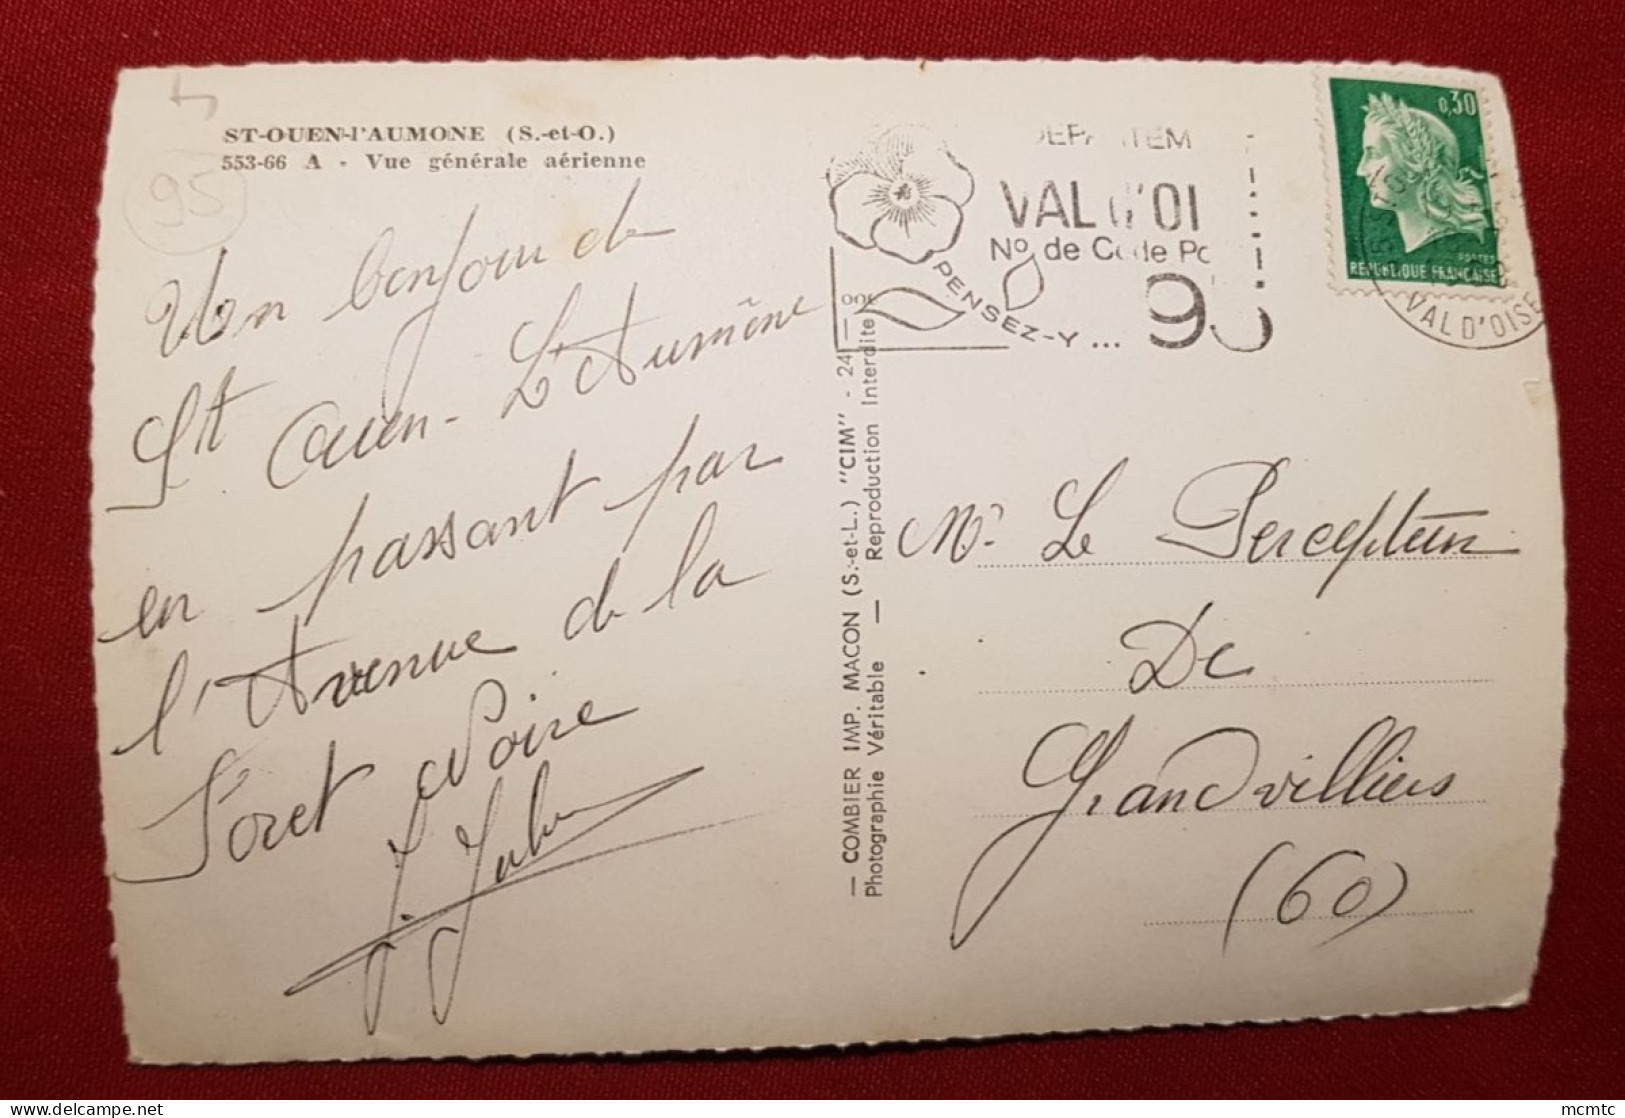 ST-OUEN-l'AUMONE (S.-et-O.)
553-66 A - Vue générale aérienne
95
Un bonjour de
St Ouen-L'Aumône
en passant par
l'Avenue de la
Foret Noire
— COMBIER IMP. MACON (S.-et-L.) "CIM" - 24 —
Photographie Véritable — Reproduction Interdite
VAL d'OI
No de Code Po
PENSEZ-Y...
95
0,30
POSTES
REPUBLIQUE FRANCAISE
VAL D'OISE
Mr. Le Percepteur
De
Grandvilliers
(60)
mcmtc